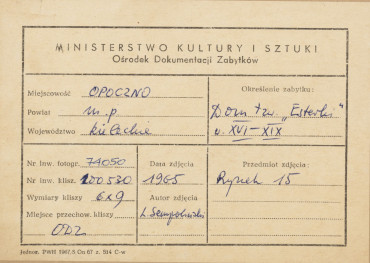 MINISTERSTWO KULTURY I SZTUKI
Ośrodek Dokumentacji Zabytków
Miejscowość OPOCZNO
Powiat m.p
Województwo kieleckie
Określenie zabytku:
Dom tzw. „Esterki"
w. XVI-XIX
Nr inw. fotogr. 74050
Nr inw. klisz. 100530
Wymiary kliszy 6x9
Miejsce przechow. kliszy
ODZ
Data zdjęcia
1965
Autor zdjęcia
Przedmiot zdjęcia:
Rynek 15